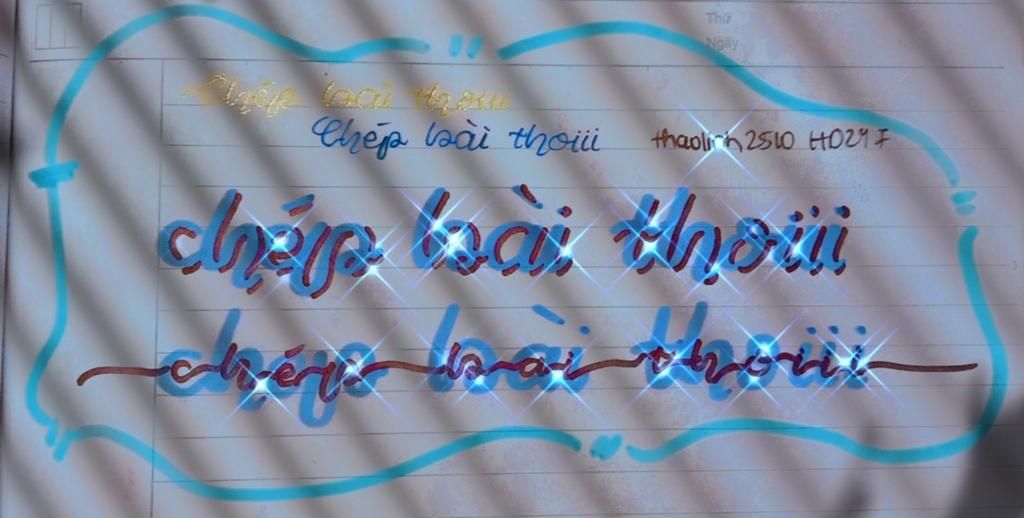 Thứ
Ngày
Chép bài thoiii
Chép bài thoiii thaolinh2510 HD29F
chép bài thoiii
chép bài thoiii